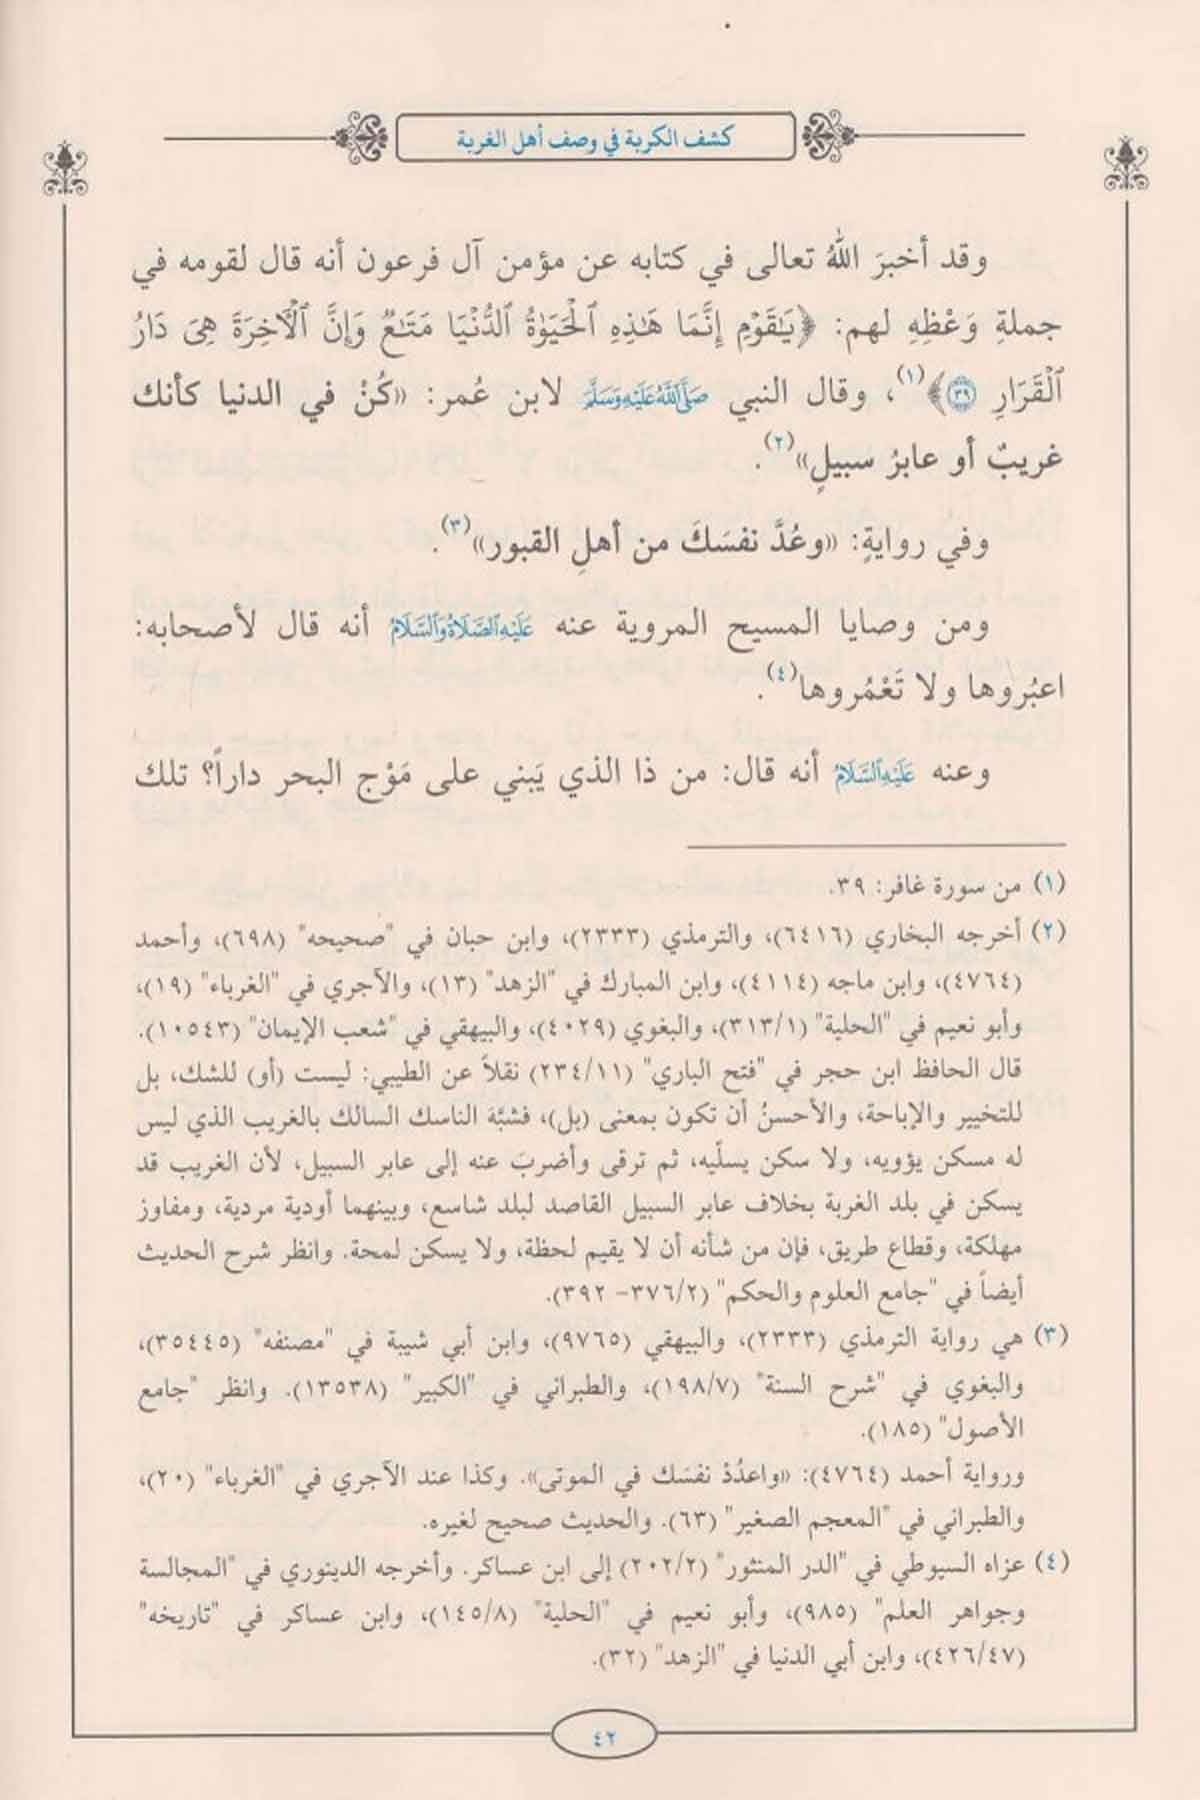 كشف الكربة في وصف أهل الغربة
وقد أخبرَ اللهُ تعالى في كتابه عن مؤمن آل فرعون أنه قال لقومه في
جملةِ وَعْظِهِ لهم: ﴿يَٰقَوْمِ إِنَّمَا هَٰذِهِ ٱلْحَيَوٰةُ ٱلدُّنْيَا مَتَٰعٌ وَإِنَّ ٱلْآخِرَةَ هِىَ دَارُ
ٱلْقَرَارِ ٣٩﴾(١)، وقال النبي صَلَّى اللَّهُ عَلَيْهِ وَسَلَّمَ لابن عُمر: «كُنْ في الدنيا كأنك
غريبٌ أو عابرُ سبيلٍ»(٢).
وفي روايةٍ: «وعُدَّ نفسَكَ من أهلِ القبور»(٣).
ومن وصايا المسيح المروية عنه عَلَيْهِ الصَّلَاةُ وَالسَّلَامُ أنه قال لأصحابه:
اعبُروها ولا تَعْمُروها(٤).
وعنه عَلَيْهِ السَّلَامُ أنه قال: من ذا الذي يَبني على مَوْج البحر داراً؟ تلك
(١) من سورة غافر: ٣٩.
(٢) أخرجه البخاري (٦٤١٦)، والترمذي (٢٣٣٣)، وابن حبان في "صحيحه" (٦٩٨)، وأحمد
(٤٧٦٤)، وابن ماجه (٤١١٤)، وابن المبارك في "الزهد" (١٣)، والآجري في "الغرباء" (١٩)،
وأبو نعيم في "الحلية" (٣١٣/١)، والبغوي (٤٠٢٩)، والبيهقي في "شعب الإيمان" (١٠٥٤٣).
قال الحافظ ابن حجر في "فتح الباري" (٢٣٤/١١) نقلاً عن الطيبي: ليست (أو) للشك، بل
للتخيير والإباحة، والأحسنُ أن تكون بمعنى (بل)، فشبَّه الناسك السالك بالغريب الذي ليس
له مسكن يؤويه، ولا سكن يسلّيه، ثم ترقى وأضربَ عنه إلى عابر السبيل، لأن الغريب قد
يسكن في بلد الغربة بخلاف عابر السبيل القاصد لبلد شاسع، وبينهما أودية مردية، ومفاوز
مهلكة، وقطاع طريق، فإن من شأنه أن لا يقيم لحظة، ولا يسكن لمحة. وانظر شرح الحديث
أيضاً في "جامع العلوم والحكم" (٣٧٦/٢- ٣٩٢).
(٣) هي رواية الترمذي (٢٣٣٣)، والبيهقي (٩٧٦٥)، وابن أبي شيبة في "مصنفه" (٣٥٤٤٥)،
والبغوي في "شرح السنة" (١٩٨/٧)، والطبراني في "الكبير" (١٣٥٣٨). وانظر "جامع
الأصول" (١٨٥).
ورواية أحمد (٤٧٦٤): «واعدُدْ نفسَك في الموتى». وكذا عند الآجري في "الغرباء" (٢٠)،
والطبراني في "المعجم الصغير" (٦٣). والحديث صحيح لغيره.
(٤) عزاه السيوطي في "الدر المنثور" (٢٠٢/٢) إلى ابن عساكر. وأخرجه الدينوري في "المجالسة
وجواهر العلم" (٩٨٥)، وأبو نعيم في "الحلية" (١٤٥/٨)، وابن عساكر في "تاريخه"
(٤٢٦/٤٧)، وابن أبي الدنيا في "الزهد" (٣٢).
٤٢